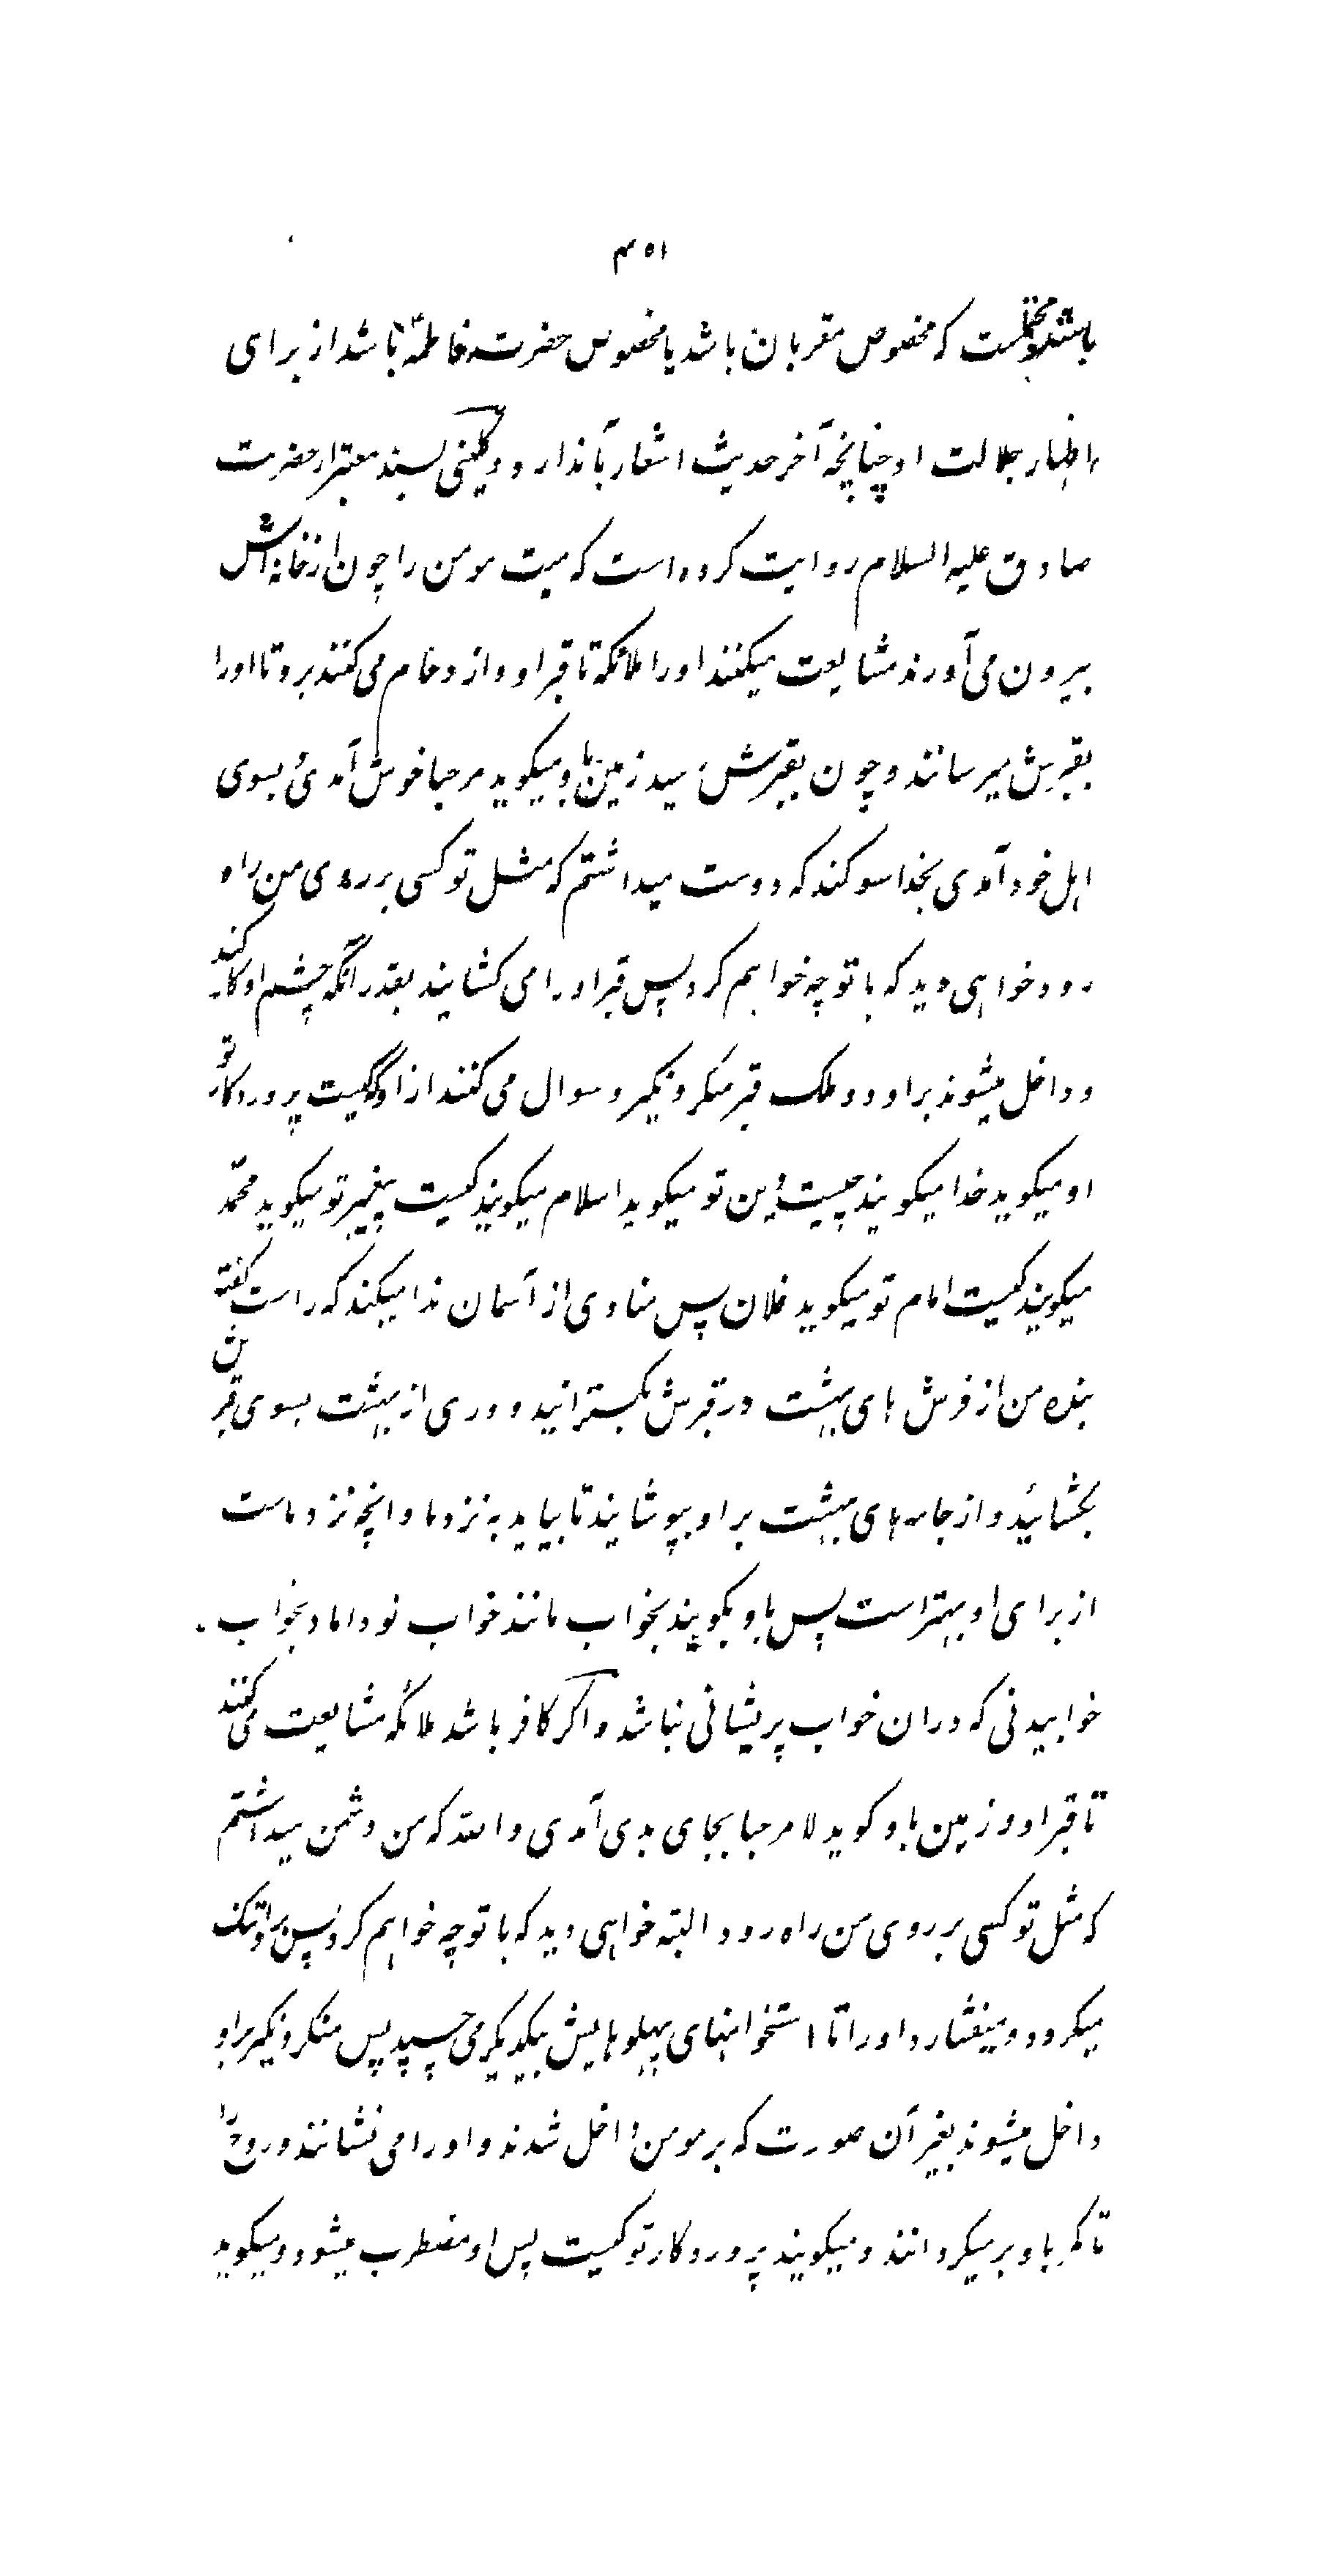 ۳۵۱
باشد و محتملست که مخصوص مقربان باشد یا مخصوص حضرت فاطمهؑ باشد از برای
اظهار جلالت او چنانچه آخر حدیث اشعار بآن دارد و کلینی بسند معتبر از حضرت
صادق علیه السلام روایت کرده است که میت مومن را چون از خانه اش
بیرون می آورند مشایعت میکنند اورا ملائکه تا قبر او و ازدحام می کنند برو تا اورا
بقبرش میرسانند و چون بقبرش رسید زمین باو میگوید مرحبا خوش آمدئ بسوی
اہل خود آمدی بخدا سوکند که دوست میداشتم که مثل تو کسی بر روی من راه
رود خواہی دید که با تو چه خواہم کرد پس قبر اورا می کشایند بقدر آنکه چشم او کار کند
و داخل میشوند بر او دو ملک قبر منکر و نکیر و سوال می کنند از او که کیست پروردکار تو
او میکوید خدا میکویند چیست دین تو میکوید اسلام میکویند کیست پیغمبر تو میکوید محمّد
میکویند کیست امام تو میکوید فلان پس منادی از آسمان ندا میکند که راست کفته
بنده من از فرش ہای بہشت در قبرش بکسترانید و دری از بہشت بسوی قبرش
بکشائید و از جامہ ہای بہشت بر او بپوشانید تا بیاید به نزد ما و انچه نزد ماست
از برای او بہتر است پس باو بکویند بخواب مانند خواب نو داماد بخواب
خوابیدنی که دران خواب پریشانی نباشد و اکر کافر باشد ملائکه مشایعت می کنند
تا قبر او و زمین باو کوید لا مرحبا بجای بدی آمدی و اللّه که من دشمن میداشتم
که مثل تو کسی بر روی من راه رود البته خواہی دید که با تو چه خواہم کرد پس بر او تنک
میکردد و میفشارد اورا تا استخوانہای پہلوہایش بیکدیکر می چسپد پس منکر و نکیر بر او
داخل میشوند بغیر آن صورت که بر مومن داخل شدند و اورا می نشانند و روح را
تا کمر باو بر میکردانند و میکویند پروردکار تو کیست پس او مضطرب میشود و میکوید